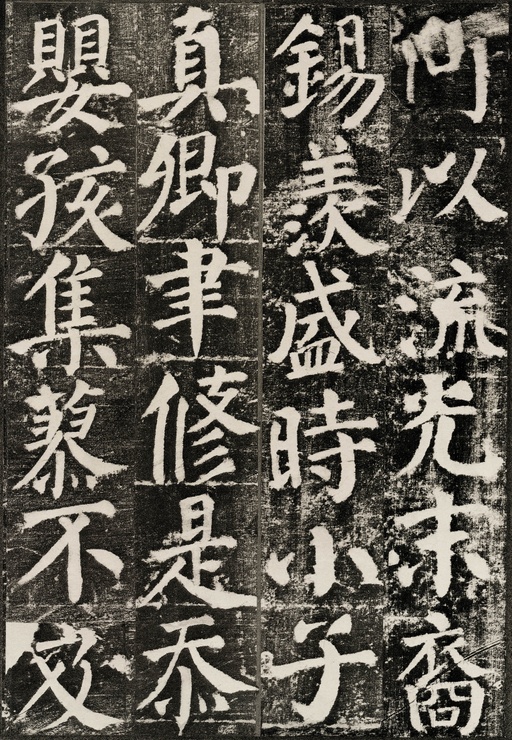 何以流光末裔
錫羨盛時小子
真卿聿修是忝
嬰孩集蓼不